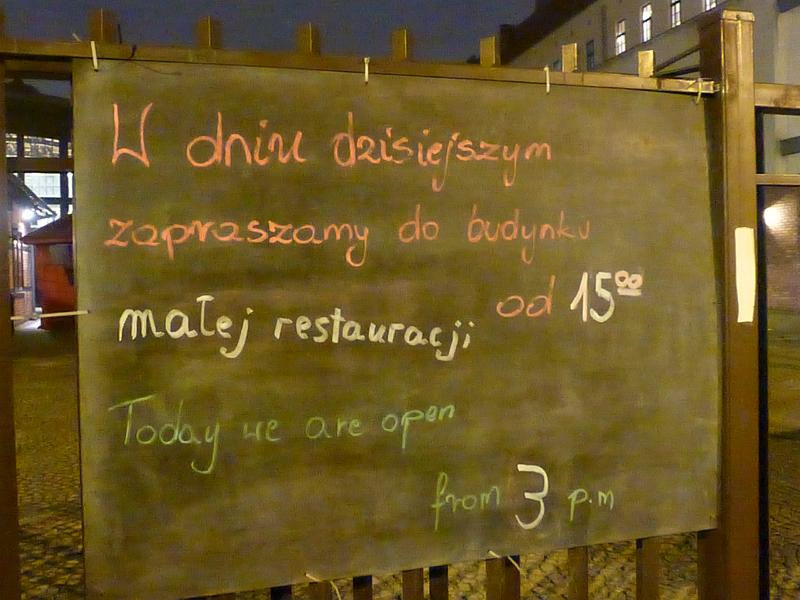 W dniu dzisiejszym
zapraszamy do budynku
małej restauracji od 15⁰⁰
Today we are open
from 3 p.m